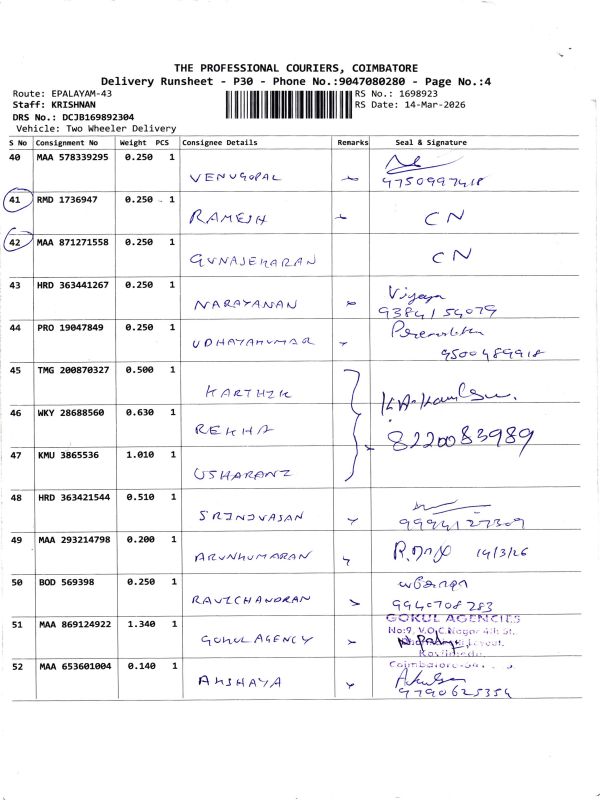 THE PROFESSIONAL COURIERS, COIMBATORE
Delivery Runsheet - P30 - Phone No.:9047080280 - Page No.:4
Route: EPALAYAM-43
RS No.: 1698923
Staff: KRISHNAN
RS Date: 14-Mar-2026
DRS No.: DCJB169892304
Vehicle: Two Wheeler Delivery
S No Consignment No Weight PCS Consignee Details Remarks Seal & Signature
40 MAA 578339295 0.250 1
VENUGOPAL
9750997418
41 RMD 1736947 0.250 1
RAMESH CN
42 MAA 871271558 0.250 1
GUNASEKARAN CN
43 HRD 363441267 0.250 1
NARAYANAN Vijaya
9384154079
44 PRO 19047849 0.250 1
UDHAYAKUMAR
9500489918
45 TMG 200870327 0.500 1
KARTHIK
46 WKY 28688560 0.630 1
REKHA
8220083989
47 KMU 3865536 1.010 1
USHARANI
48 HRD 363421544 0.510 1
SRINIVASAN
9994127309
49 MAA 293214798 0.200 1
ARUNKUMARAN 14/3/26
50 BOD 569398 0.250 1
RAVICHANDRAN
9940708283
51 MAA 869124922 1.340 1
GOKUL AGENCY
GOKUL AGENCIES
No:9, V.O.C.Nagar 4th St.
Coimbatore
52 MAA 653601004 0.140 1
AKSHAYA
9790625354